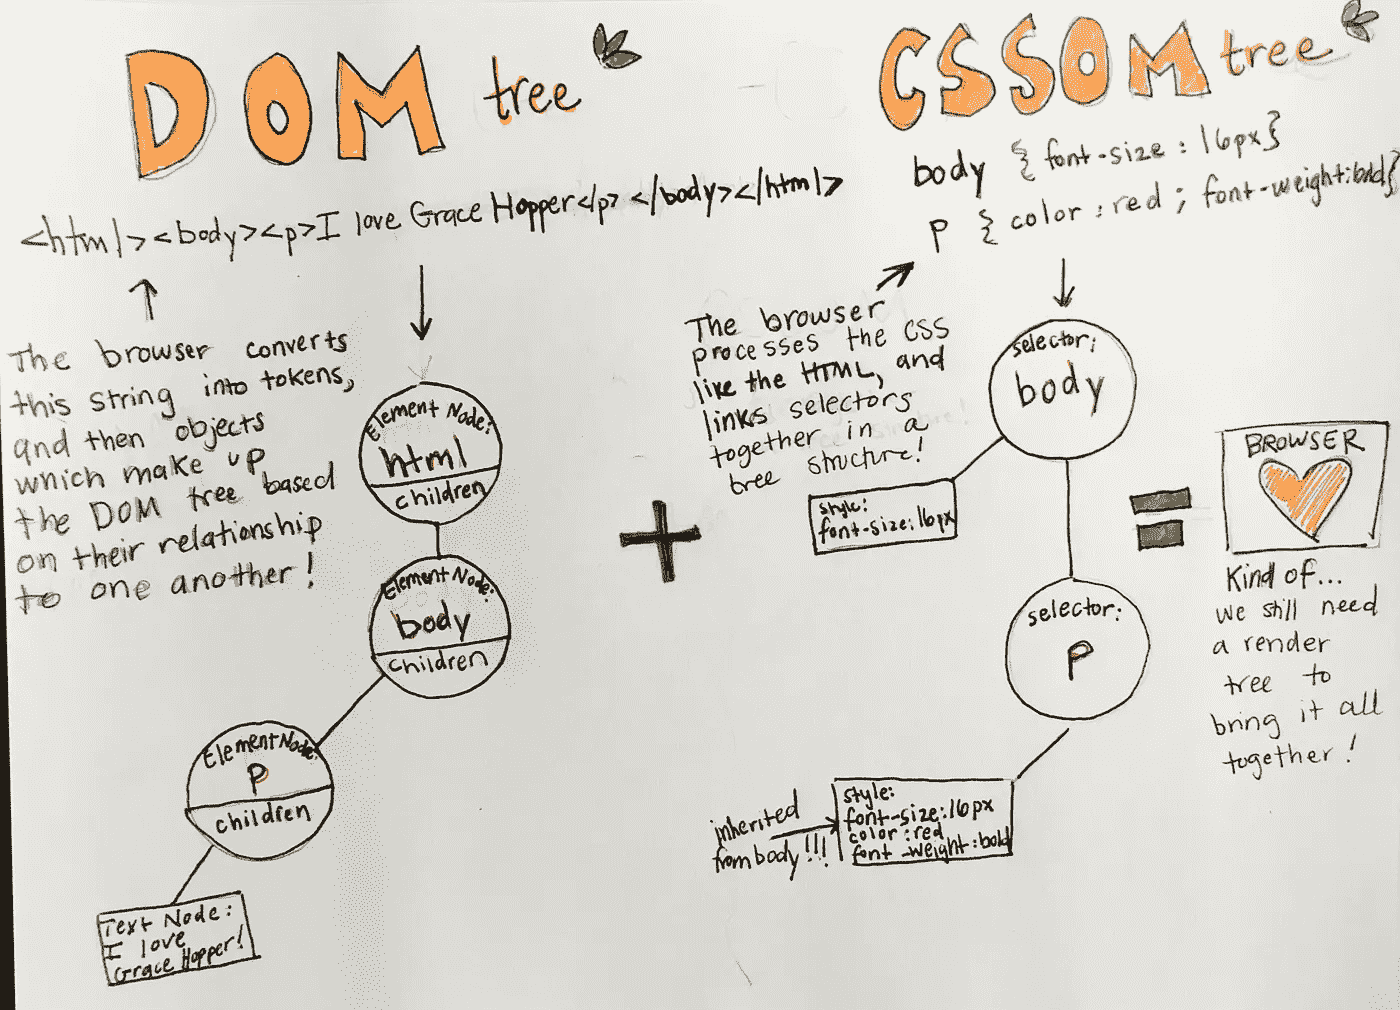 DOM tree
<html><body><p>I love Grace Hopper</p></body></html>
The browser converts
this string into tokens,
and then objects
which make up
the DOM tree based
on their relationship
to one another!
Element Node:
html
children
Element Node:
body
children
Element Node:
p
children
Text Node:
I love
Grace Hopper!
+
CSSOM tree
body { font-size : 16px}
p { color : red ; font-weight:bold}
The browser
processes the CSS
like the HTML, and
links selectors
together in a
tree structure!
selector:
body
style:
font-size:16px
selector:
p
inherited
from body!!!
style:
font-size:16px
color:red
font-weight:bold
=
BROWSER
Kind of...
we still need
a render
tree to
bring it all
together!